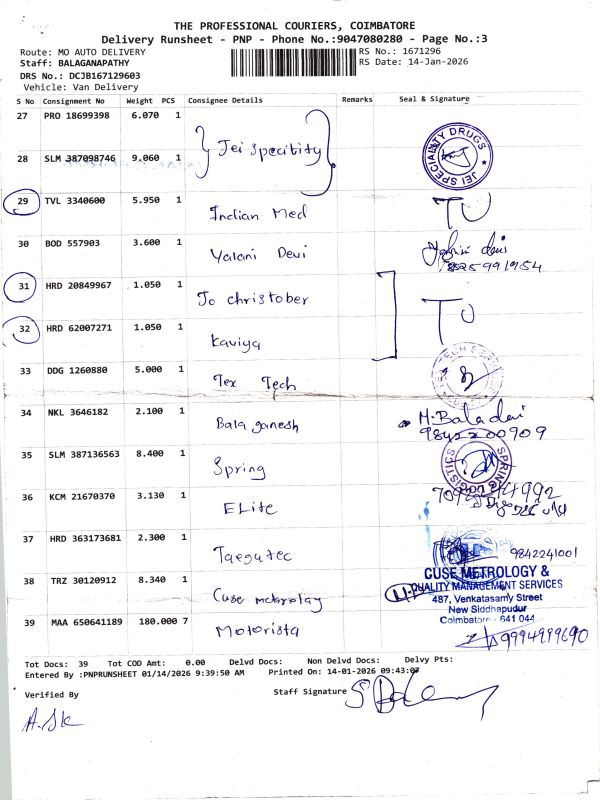 THE PROFESSIONAL COURIERS, COIMBATORE
Delivery Runsheet - PNP - Phone No.:9047080280 - Page No.:3
Route: MO AUTO DELIVERY
RS No.: 1671296
Staff: BALAGANAPATHY
RS Date: 14-Jan-2026
DRS No.: DCJB167129603
Vehicle: Van Delivery
S No Consignment No Weight PCS Consignee Details Remarks Seal & Signature
27 PRO 18699398 6.070 1
Jei specitity
JEI SPECIALITY DRUGS
28 SLM 387098746 9.060 1
29 TVL 3340600 5.950 1 Indian Med TU
30 BOD 557903 3.600 1 Yalani Devi
31 HRD 20849967 1.050 1 Jo christober
TU
32 HRD 62007271 1.050 1 Kaviya
33 DDG 1260880 5.000 1 Tex Tech
34 NKL 3646182 2.100 1 Bala ganesh M. Bala devi
9842200909
35 SLM 387136563 8.400 1 Spring
SPRING LOGISTICS
36 KCM 21670370 3.130 1 ELite
37 HRD 363173681 2.300 1 Taegutec 9842241001
38 TRZ 30120912 8.340 1 Cuse metrolay
CUSE METROLOGY &
QUALITY MANAGEMENT SERVICES
487, Venkatasamy Street
New Siddhapudur
Coimbatore - 641 044
39 MAA 650641189 180.000 7 Motorista 9994999690
Tot Docs: 39 Tot COD Amt: 0.00 Delvd Docs: Non Delvd Docs: Delvy Pts:
Entered By :PNPRUNSHEET 01/14/2026 9:39:50 AM Printed On: 14-01-2026 09:43:07
Verified By
Staff Signature